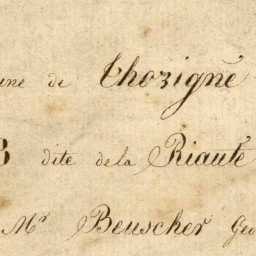 une de Thorigné
B dite de la Riauté
Mr Beuscher Géo